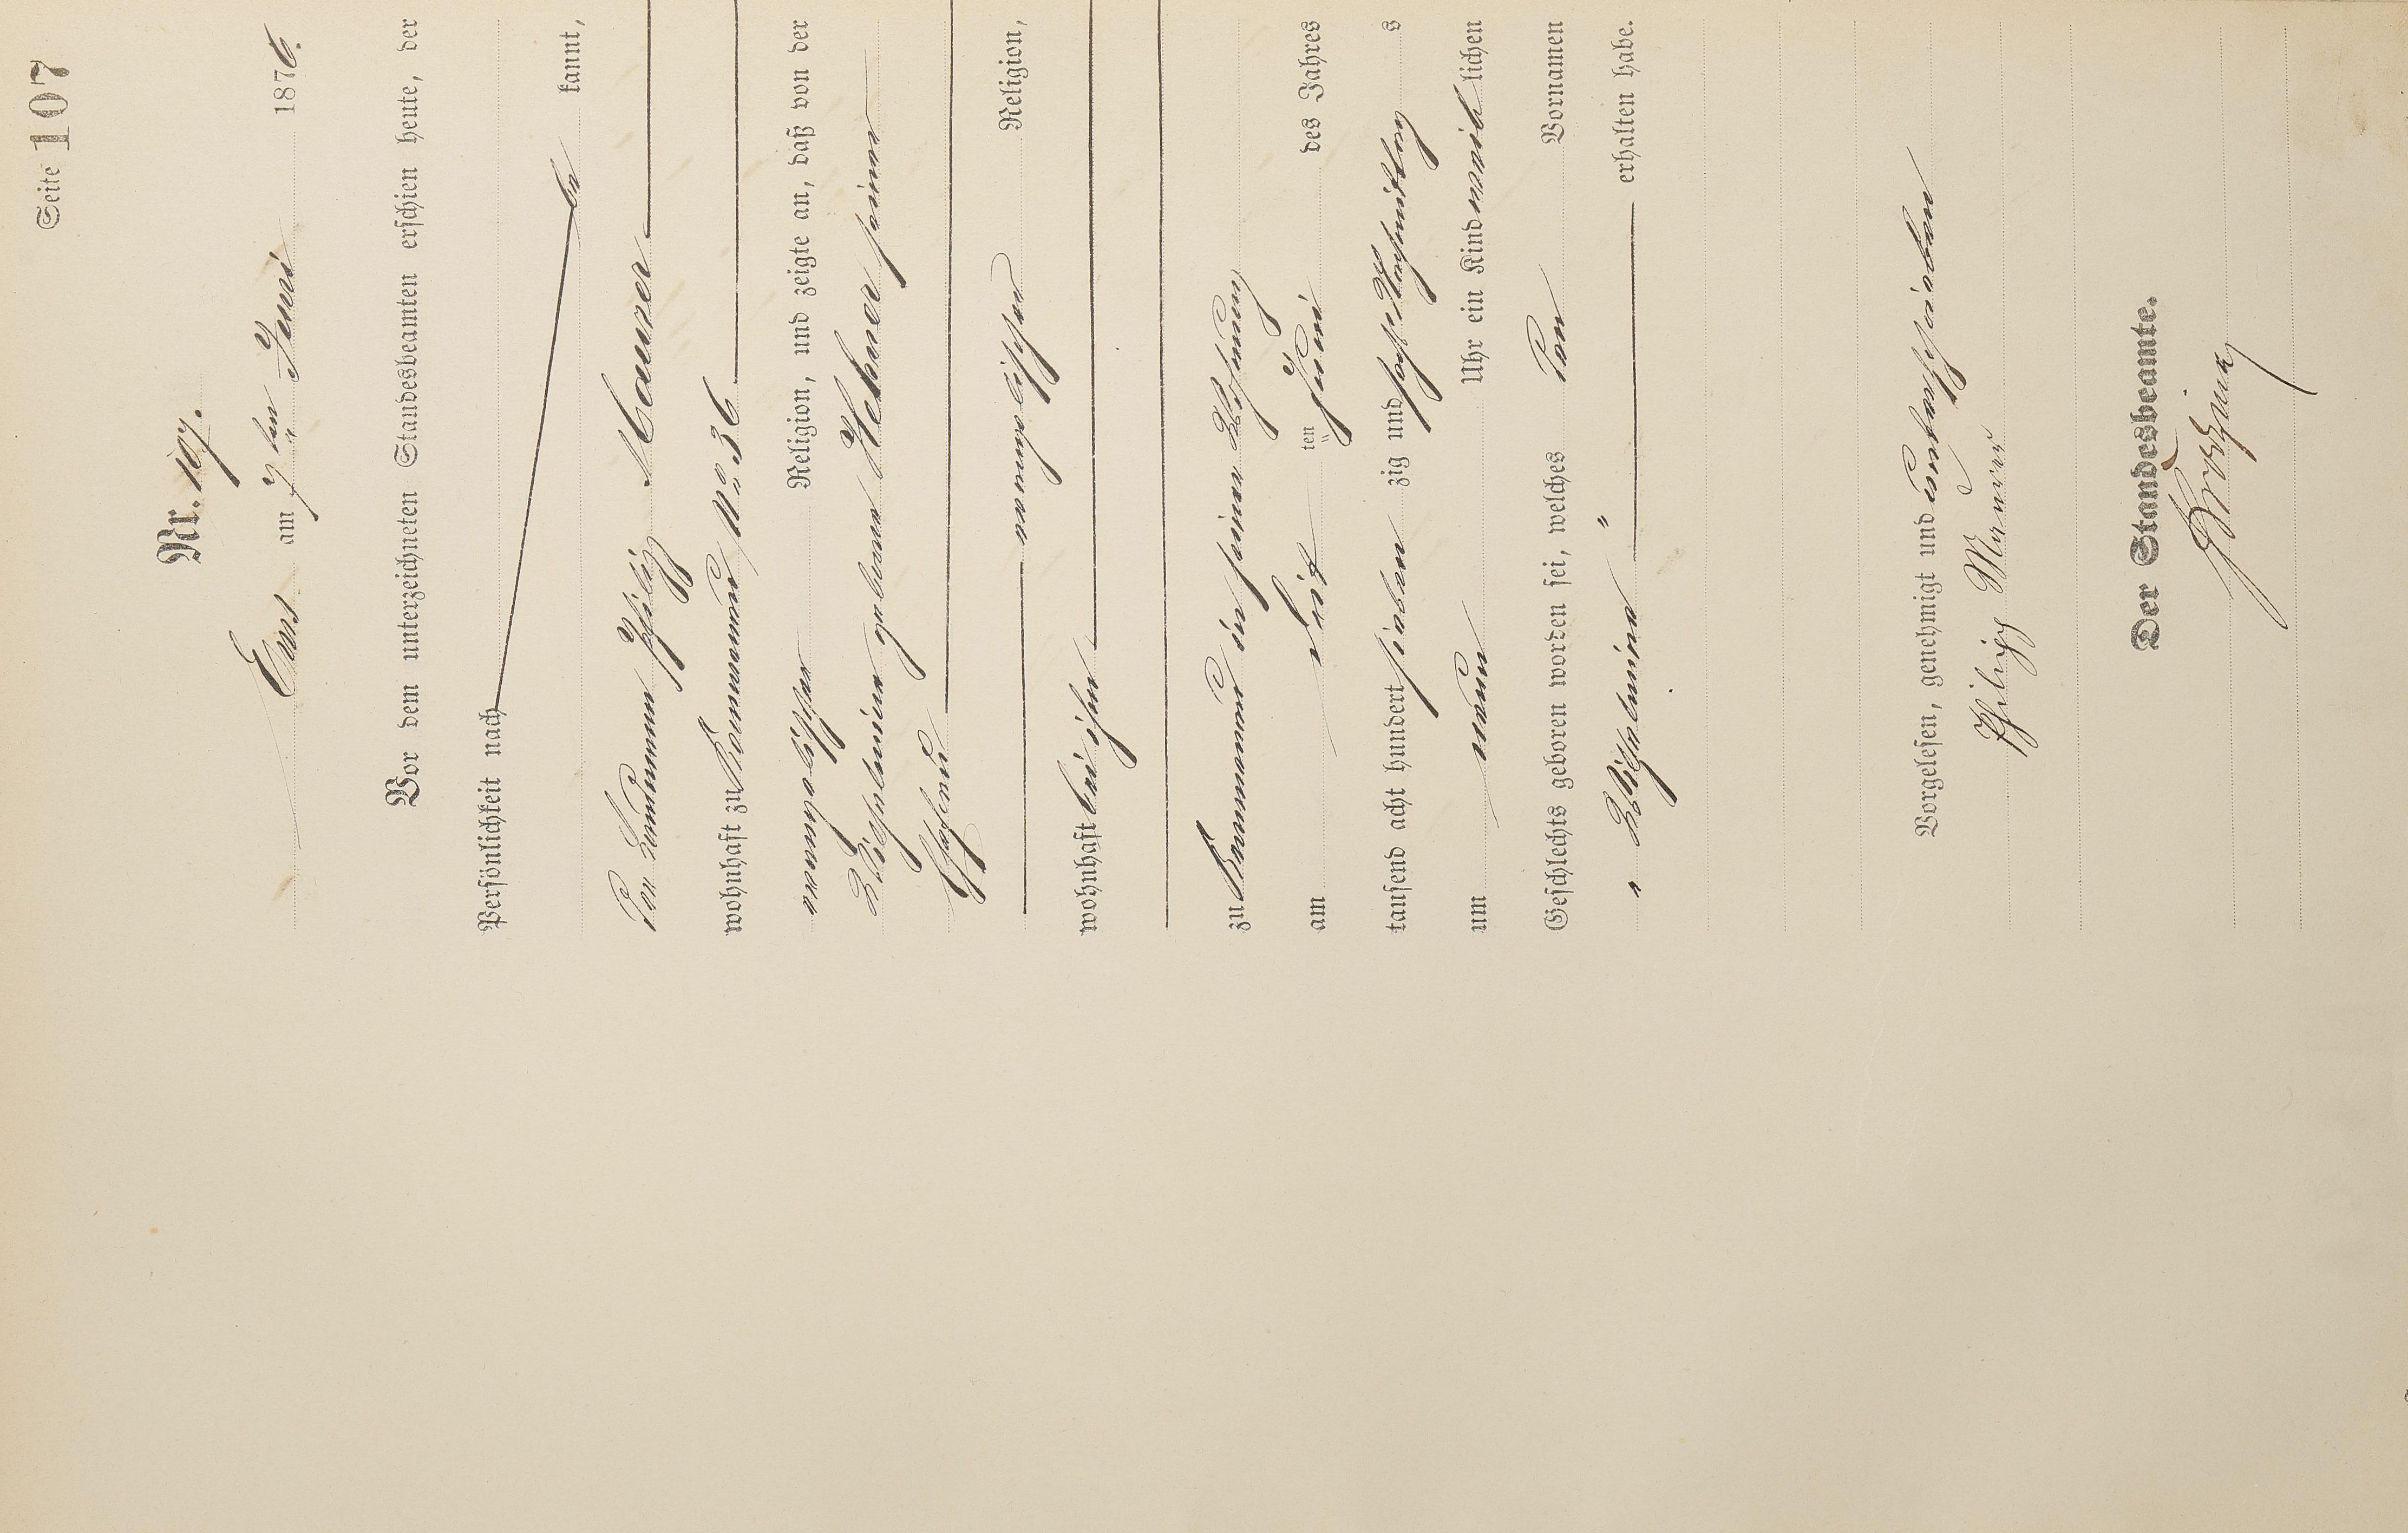 Seite 107
Nr. 107.
Ems am 7ten Juni 1876.
Vor dem unterzeichneten Standesbeamten erschien heute, der
Persönlichkeit nach
be kannt,
der Landmann Philipp Maurer
wohnhaft zu Kemmenau No 36
evangelischer Religion, und zeigte an, daß von der
Wilhelmine geborene Hehner seiner
Ehefrau
evangelischer Religion,
wohnhaft bei ihm
zu Kemmenau in seiner Wohnung
am ten Juni des Jahres
tausend acht hundert sieben zig und sechs Nachmittags
um neun Uhr ein Kind weib lichen
Geschlechts geboren worden sei, welches den Vornamen
„ Wilhelmine " erhalten habe.
Vorgelesen, genehmigt und unterschrieben
Philipp Maurer
Der Standesbeamte.